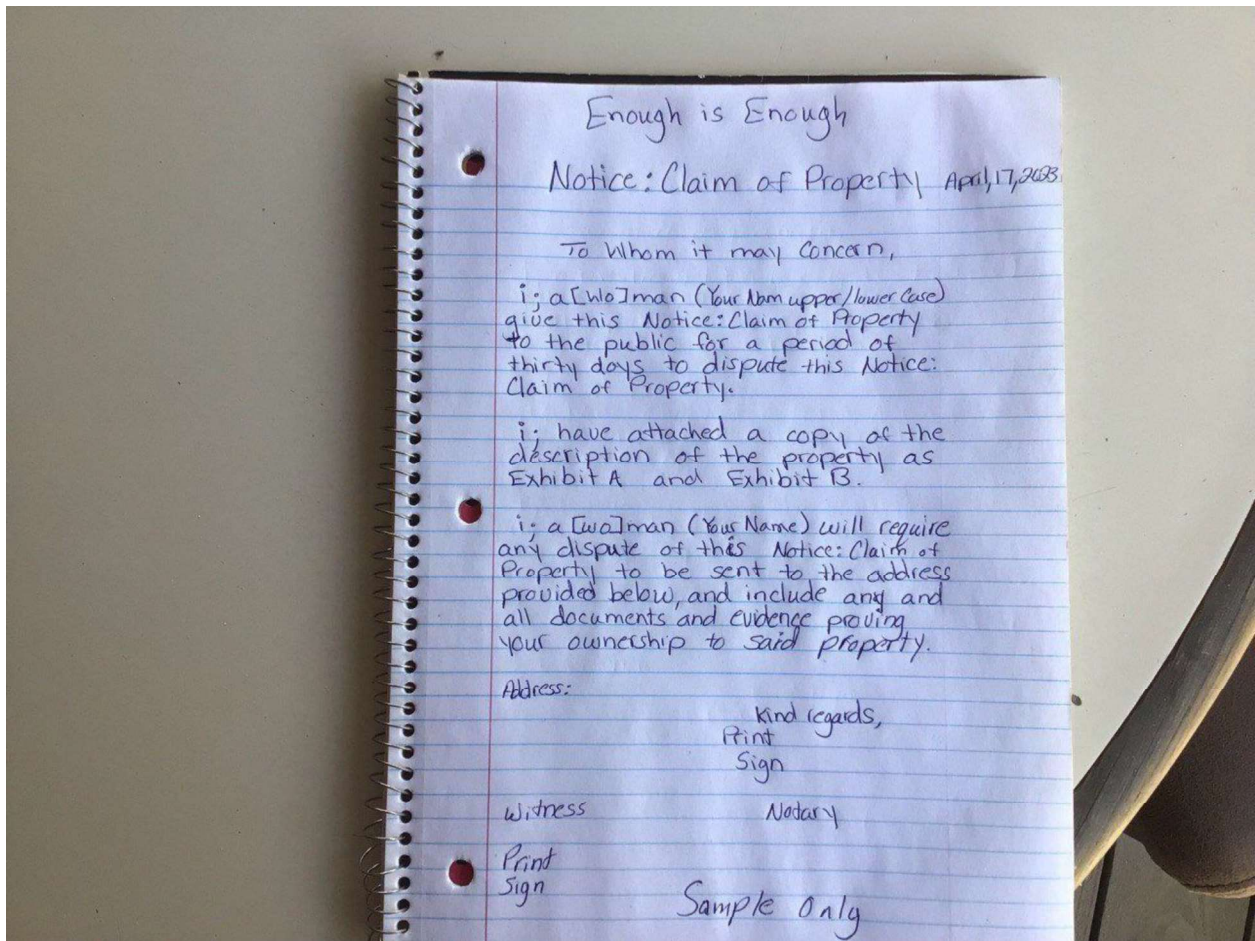 Enough is Enough
Notice: Claim of Property April, 17, 2023
To Whom it may Concern,
i; a [wo]man (Your Nam upper/lower Case)
give this Notice: Claim of Property
to the public for a period of
thirty days to dispute this Notice:
Claim of Property.
i; have attached a copy of the
description of the property as
Exhibit A and Exhibit B.
i; a [wo]man (Your Name) will require
any dispute of this Notice: Claim of
Property to be sent to the address
provided below, and include any and
all documents and evidence proving
your ownership to said property.
Address:
Kind regards,
Print
Sign
Witness Notary
Print
Sign
Sample Only